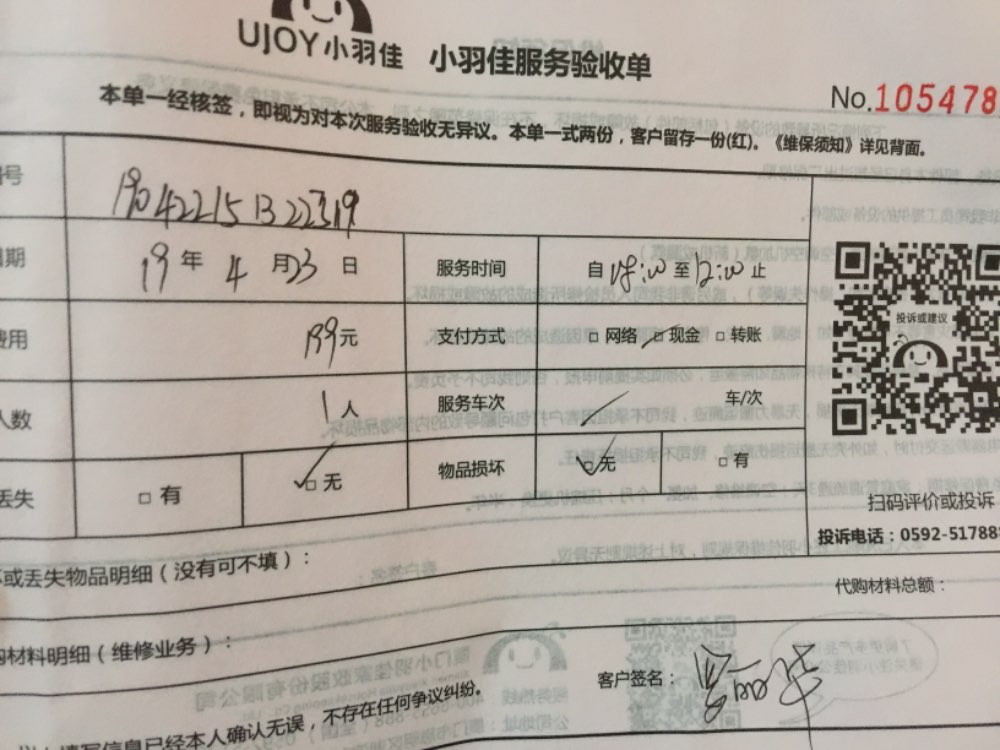 UJOY小羽佳 小羽佳服务验收单
No.105478
本单一经核签，即视为对本次服务验收无异议。本单一式两份，客户留存一份(红)。《维保须知》详见背面。
号 190422151322319
期 19年4月23日 服务时间 自18:00至12:00止
费用 199元 支付方式 □网络 □现金 □转账
人数 1人 服务车次 车/次
丢失 □有 □无 物品损坏 □无 □有
投诉或建议
扫码评价或投诉
投诉电话：0592-51788
或丢失物品明细（没有可不填）：
代购材料总额：
购材料明细（维修业务）：
客户签名：
填写信息已经本人确认无误，不存在任何争议纠纷。